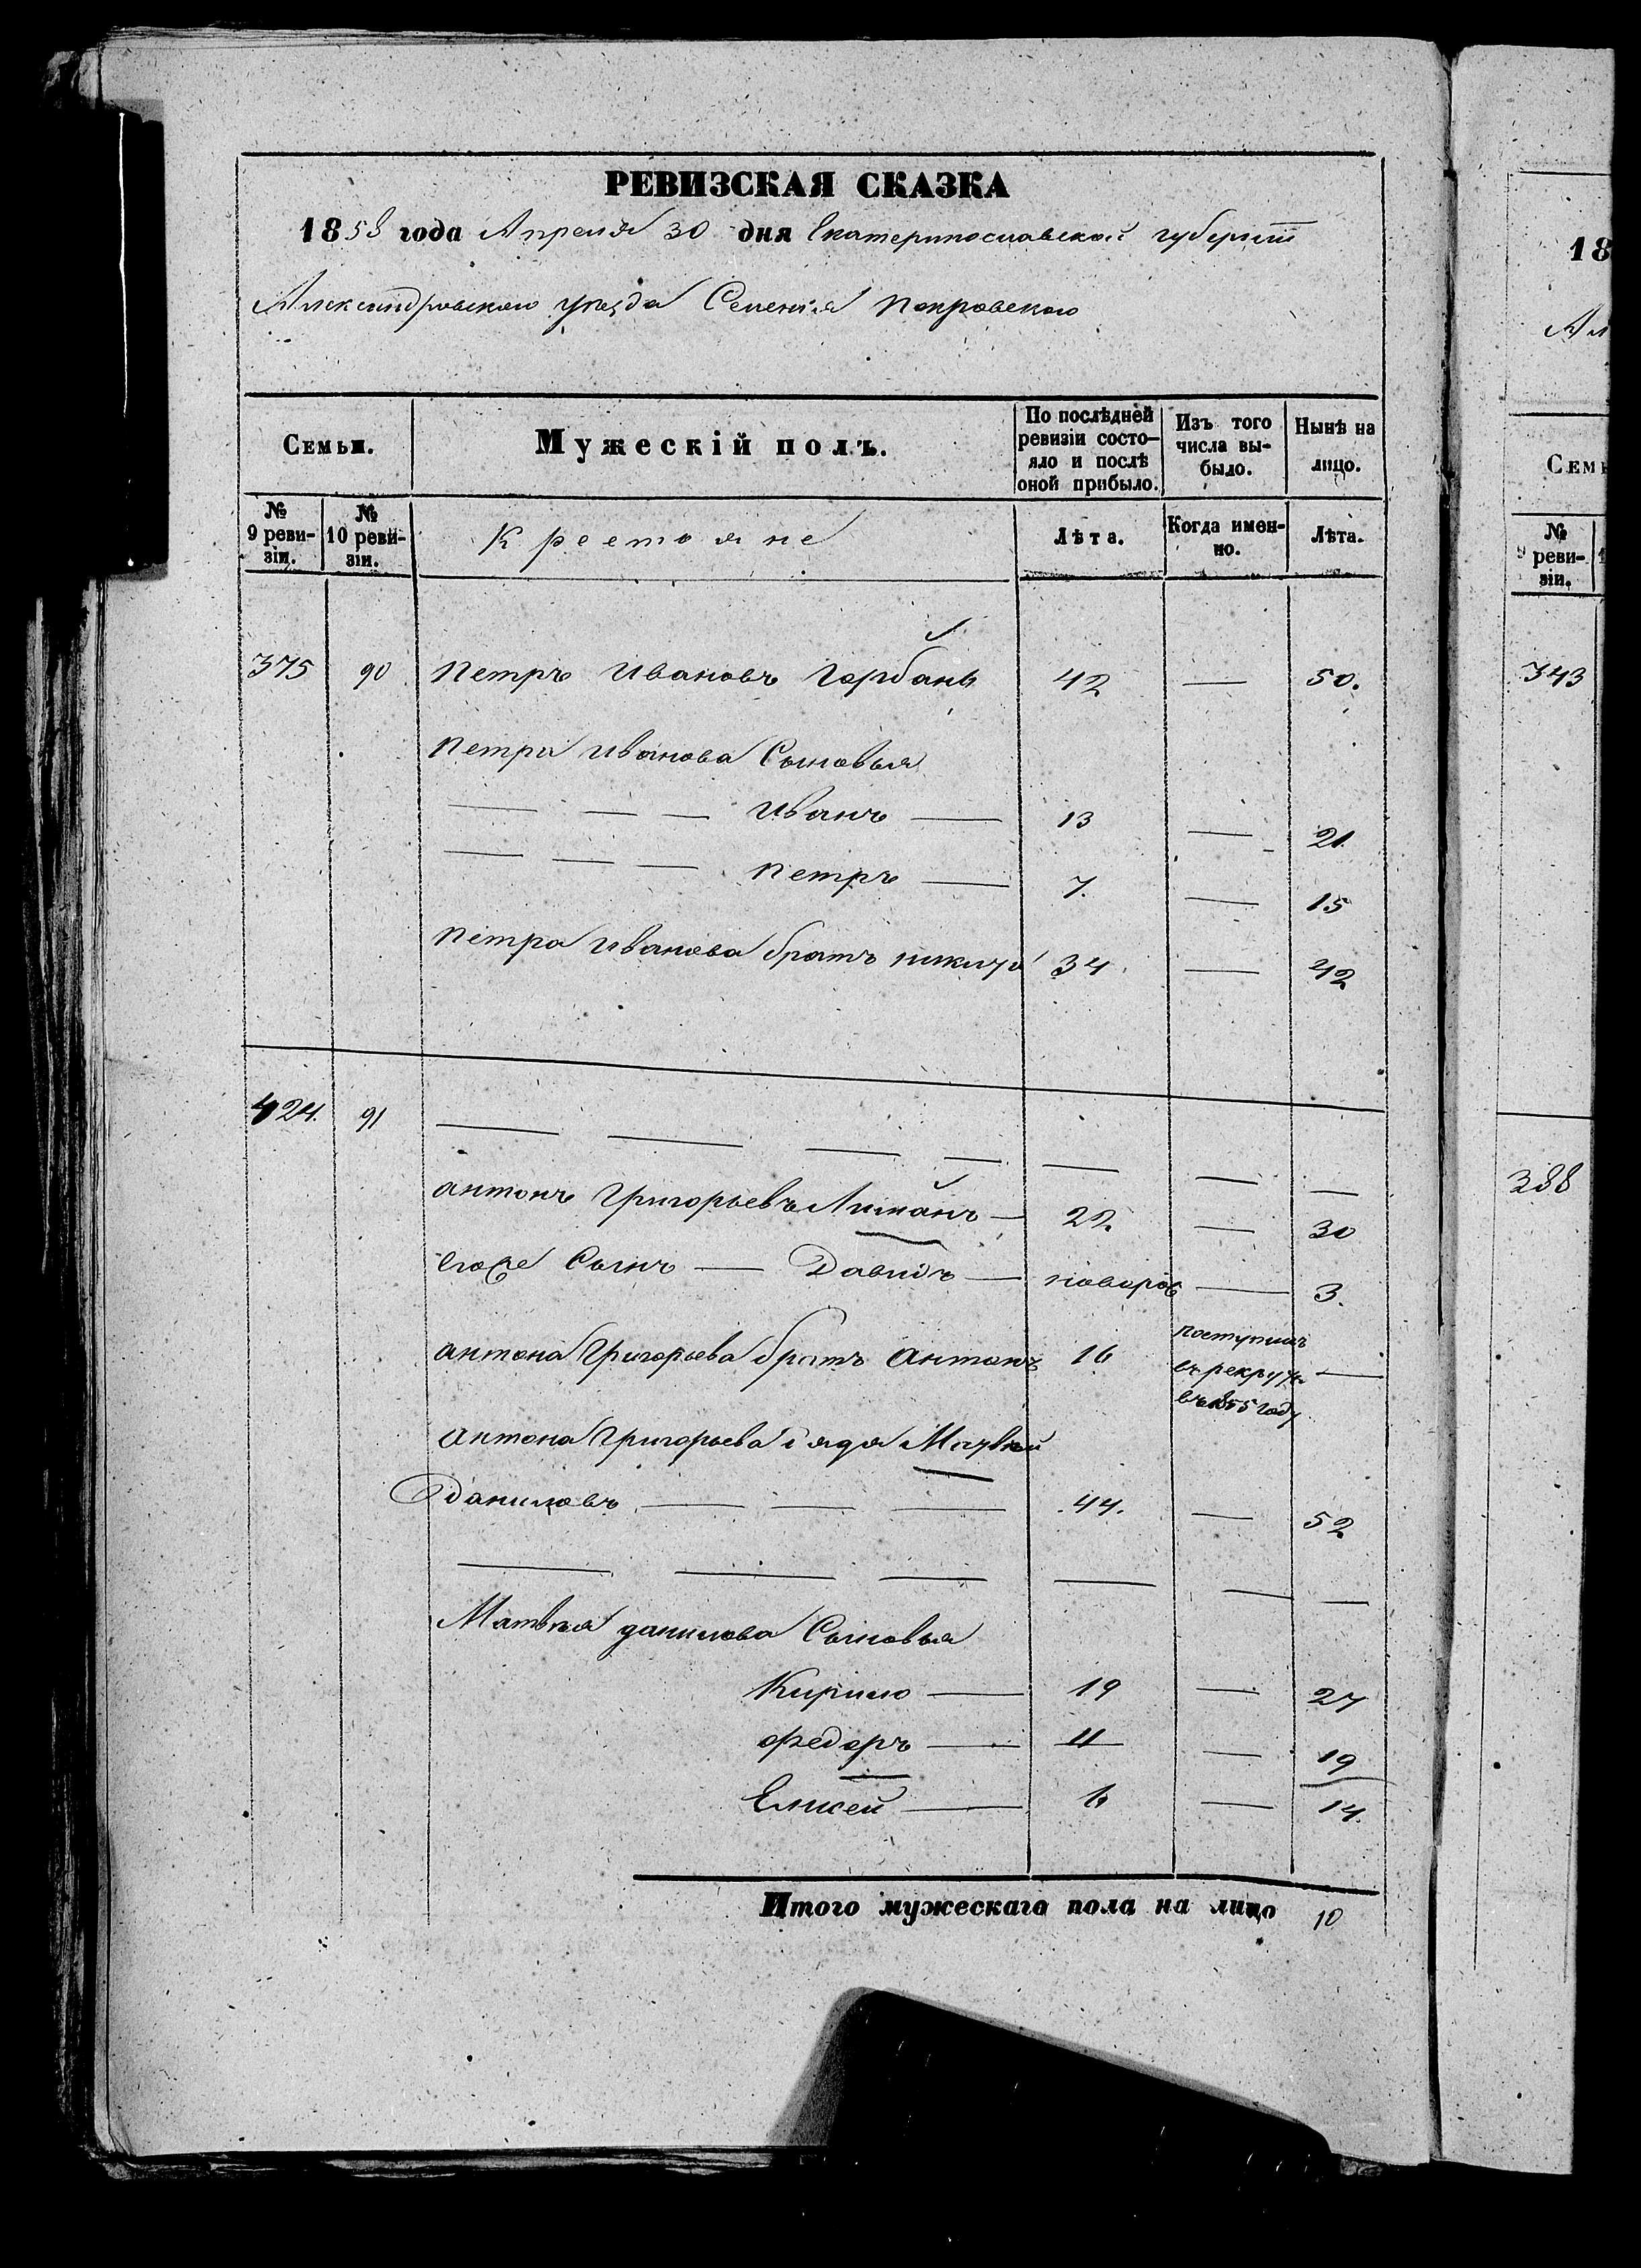 РЕВИЗСКАЯ СКАЗКА
1858 года Апреля 30 дня Екатеринославской губернии
Александровского уезда Селения Покровского
Семьи.
Мужескій полъ.
По послѣдней ревизіи состо-
яло и послѣ
оной прибыло.
Изъ того
числа вы-
было.
Нынѣ на
лицо.
№ 9 реви-
зіи.
№ 10 реви-
зіи.
Крестьяне
Лѣта.
Когда имен-
но.
Лѣта.
375 90 Петръ Ивановъ Горбань 42 — 50.
Петра Иванова Сыновья
— — — Иванъ — 13 — 21.
— — — Петръ — 7. — 15
Петра Иванова братъ Никита 34. — 42
424. 91 — — — — — — —
Антонъ Григорьевъ Лиманъ — 22. — 30
Его же Сынъ — Давидъ — новорож — 3.
Антона Григорьева братъ Антонъ 16 поступилъ
въ рекруты —
въ 1855 году
Антона Григорьева дядя Матвѣй
Даниловъ — — — 44. — 52
— — — — — —
Матвѣя Данилова Сыновья
Кирило — 19 — 27
Федоръ — 11 — 19
Елисей — 6 — 14.
Итого мужескаго пола на лицо 10
18
Ал
Семь
№
9 реви-
зіи.
1
343
388